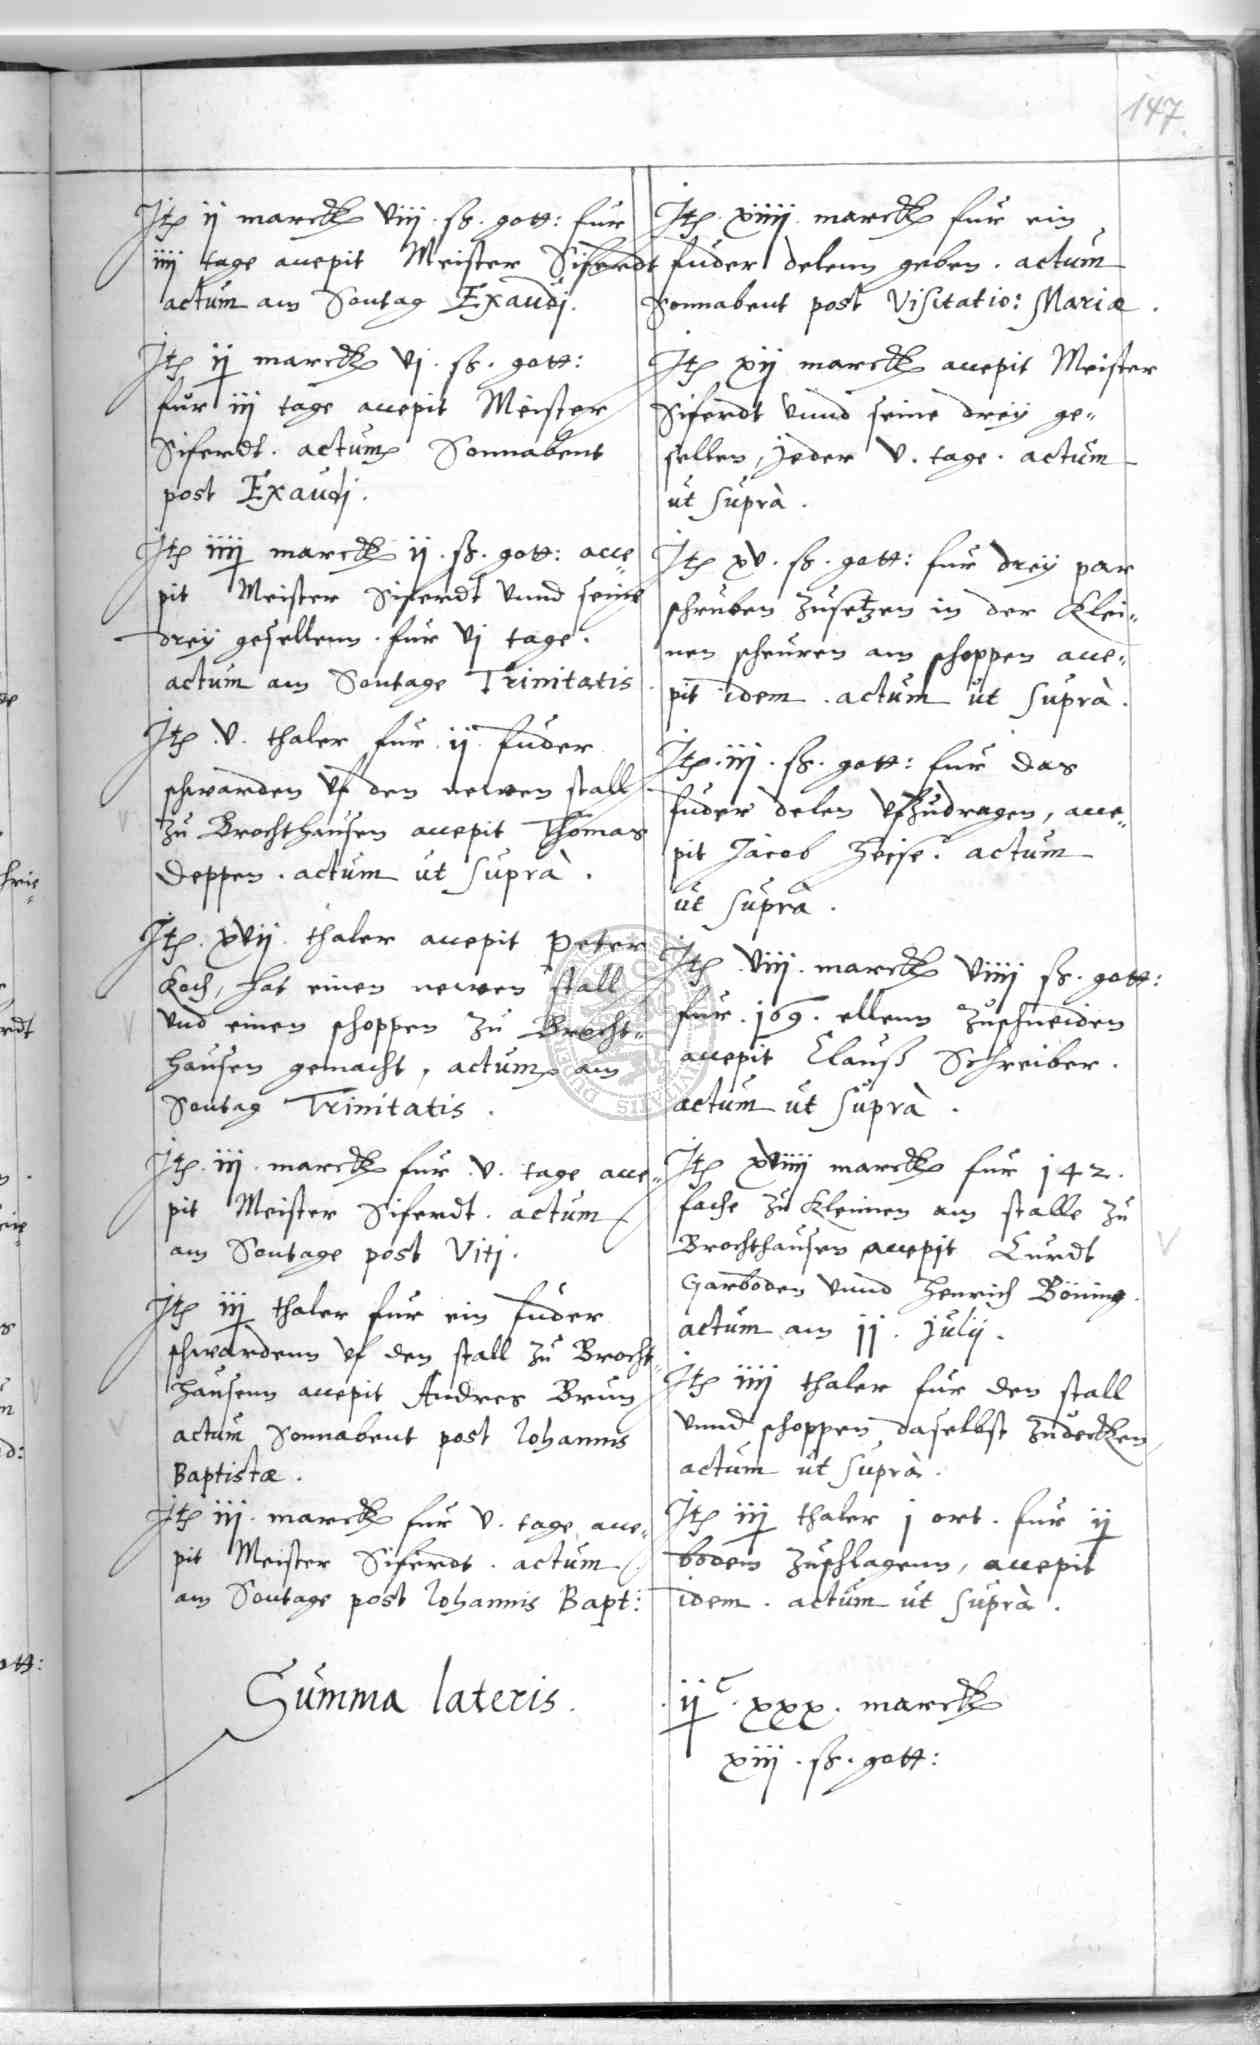 147.
Itē ij marckē viij. ſß. gott: fur
iiij tage accepit Meister Siferdt
actum am Sontag Exaudj.
Itē ij marckē vj. ſß. gott:
fur iij tage accepit Meister
Siferdt. actum Sonnabent
post Exaudj.
Itē iiij marckē ij. ſß. gott: acce„
pit Meister Siferdt vnnd seine
drey gesellenn. fur vj tage.
actum am Sontage Trinitatis.
Itē. v. thaler fur ij fuder
schwarden vf den newen stall
zu Brochthausen accepit Thomas
Deppen. actum ut suprà.
Itē. xvij. thaler accepit Peter
Koch, hat einen newen stall
vnd einen schoppen zu Brocht„
hausen gemacht, actum am
Sontag Trinitatis.
Itē. iij. marckē fur. v. tage acce„
pit Meister Siferdt. actum
am Sontage post Vitj.
Itē iij thaler fur ein fuder
schwardenn vf den stall zu Brocht„
hausenn accepit Andres Brun
actum Sonnabent post Iohannis
Baptistæ.
Itē iij. marckē fur v. tage acce„
pit Meister Siferdt. actum
am Sontage post Iohannis Bapt:
Itē. xiiij. marckē fur ein
fuder delenn geben. actum
Sonnabent post Visitatio: Mariæ.
Itē xij marckē accepit Meister
Siferdt vnnd seine drey ge„
sellen, jeder v. tage. actum
ut suprà.
Itē xv. ſß. gott: fur drey par
schruben zusetzen in der Klei„
nen scheuren am schoppen acce„
pit idem. actum ut suprà.
Itē. iij. ſß. gott: fur das
fuder delen vfzudragen, acce„
pit Jacob Zeise. actum
ut suprà.
Itē. viij. marckē viiij ſß. gott:
fur. 169. ellenn zuschneiden
accepit Clauß Schreiber.
actum ut suprà.
Itē xviiij marckē fur 142.
fache zu Kleimen am stalle zu
Brochthausen accepit Curdt
Garboden vnnd Henrich Böning.
actum am jj. Julij.
Itē iiij thaler fur den stall
vnnd schoppen daselbst zudecken,
actum ut suprà.
Itē iij thaler j ort. fur ij
bodem zuschlagenn, accepit
idem. actum ut suprà.
Summa lateris.
. ij c. xxx. marckē
xiij. ſß. gott: